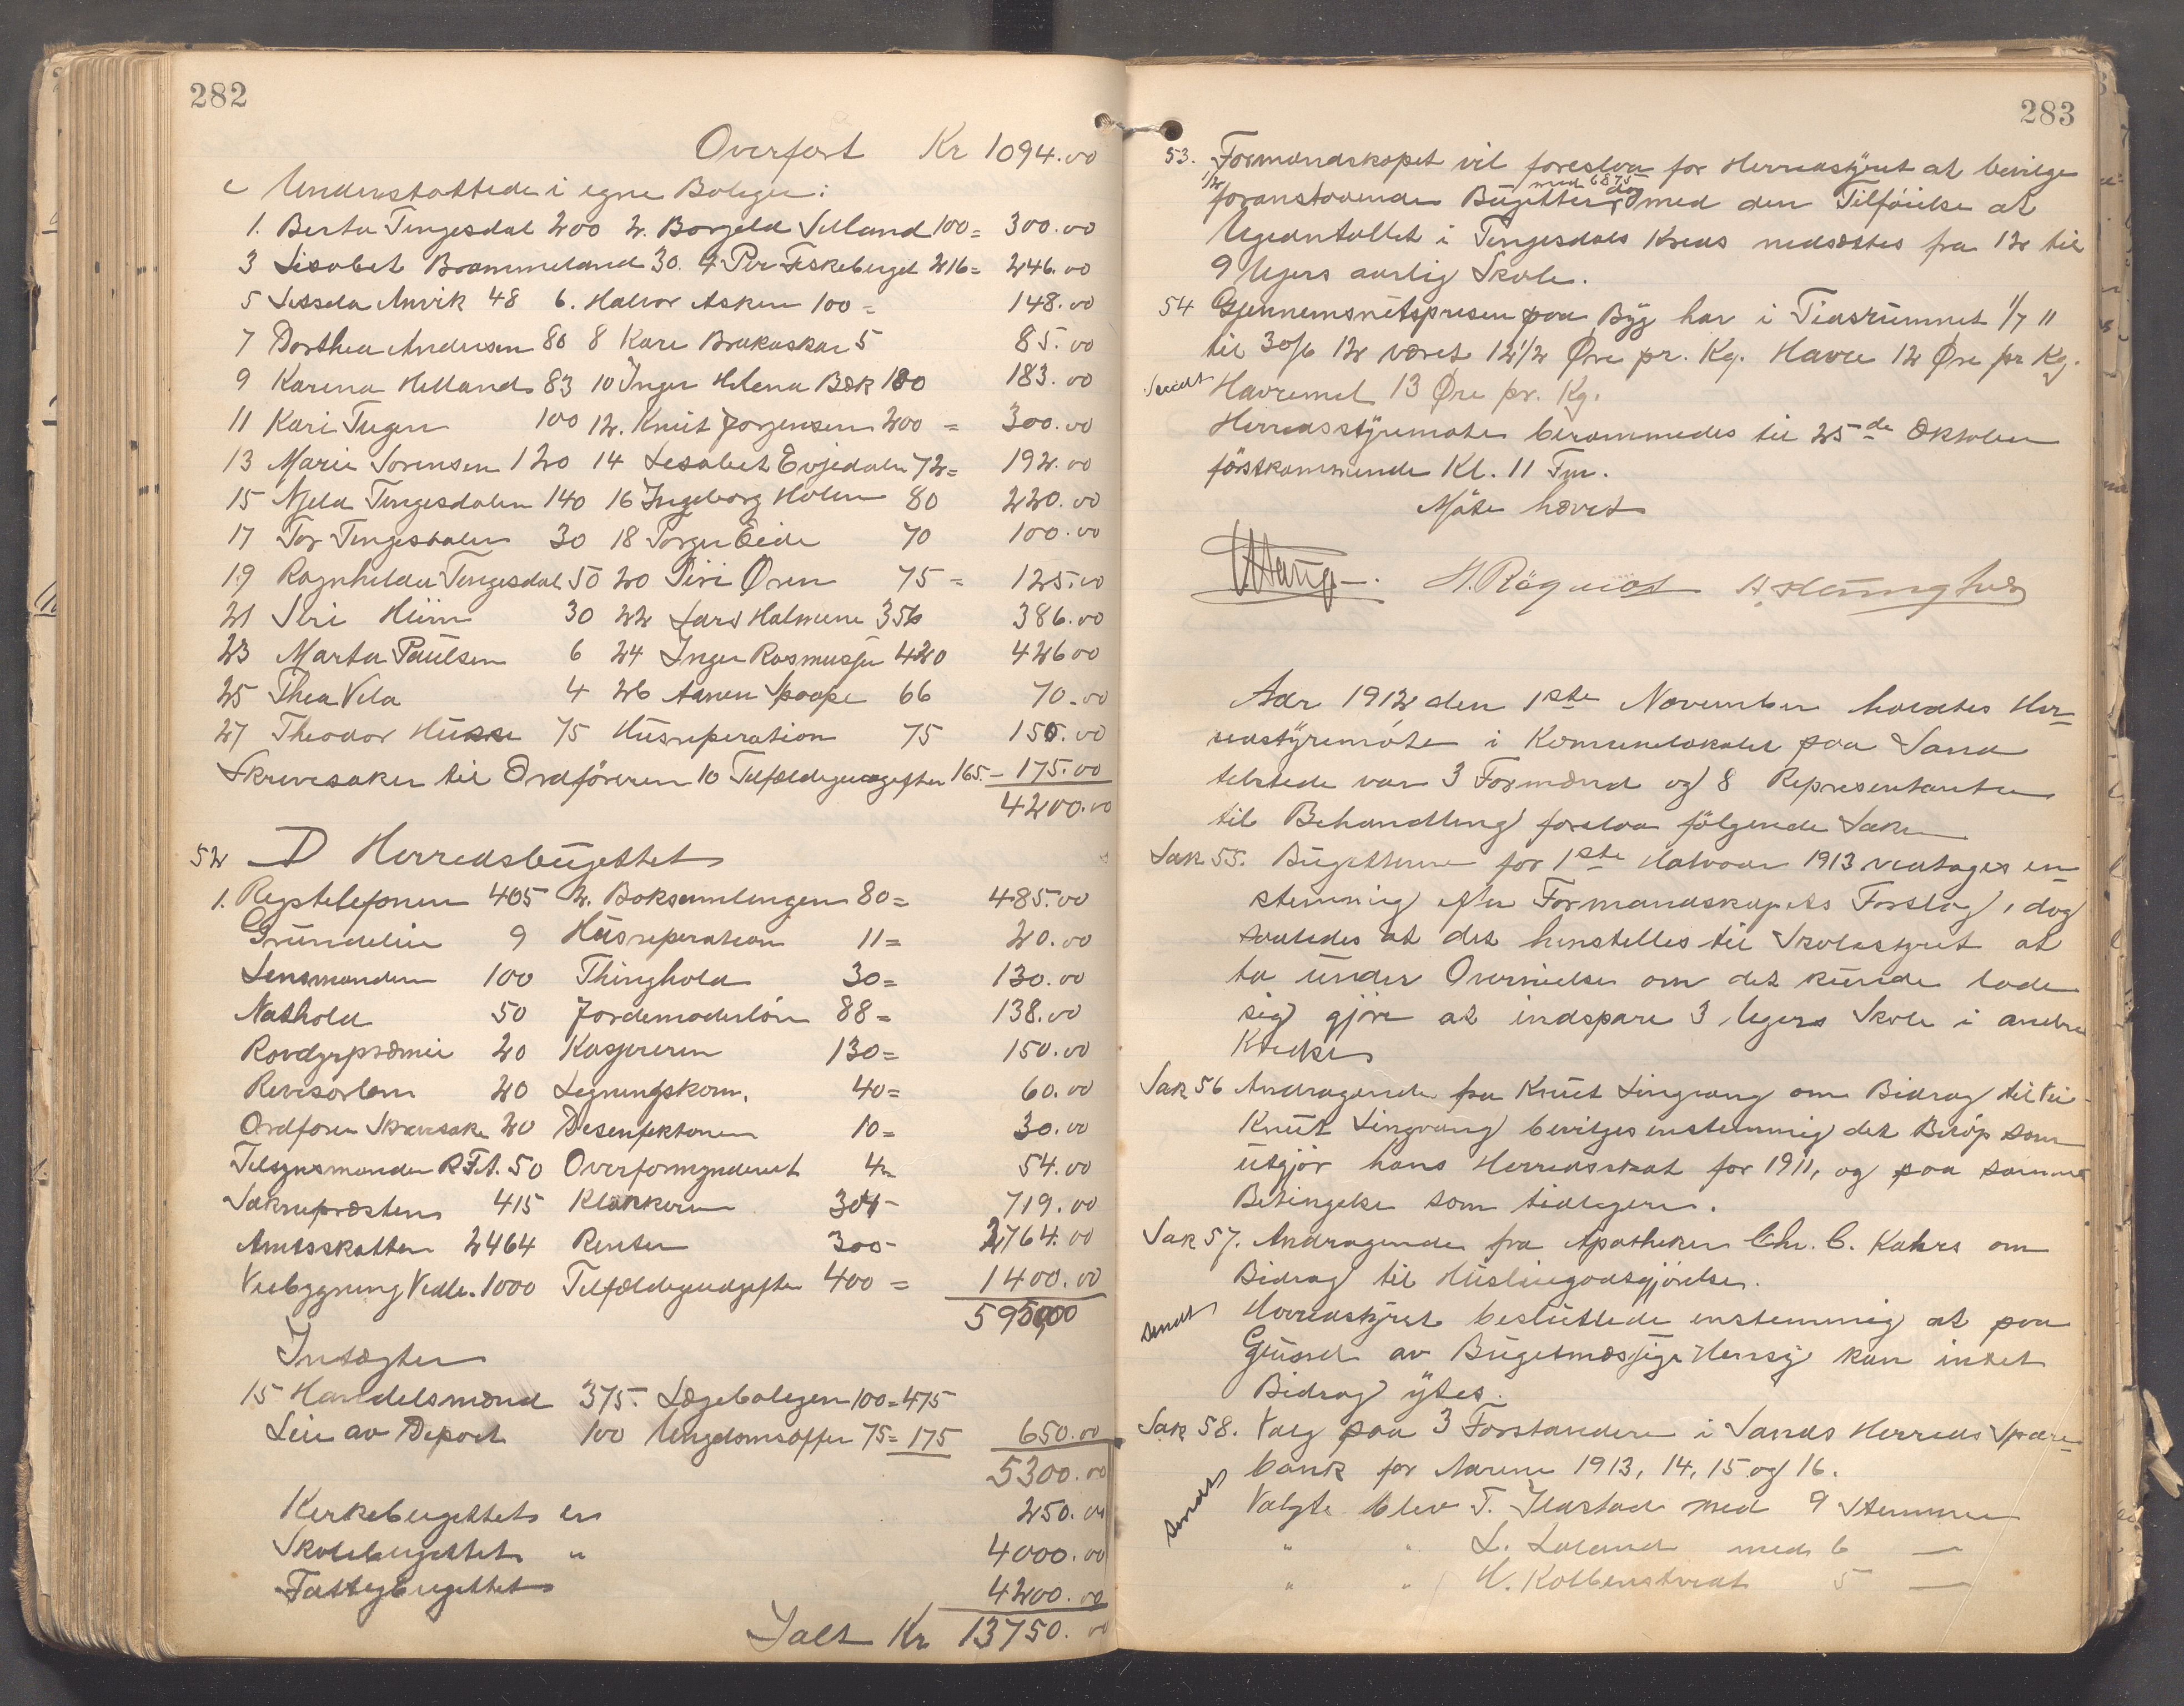 282
Overført Kr 1094.00
c Understøttede i egne Boliger:
1. Berta Tengesdal 200 2. Borgela Selland 100 = 300.00
3 Lisabet Brommeland 30. 4 Per Eskeberget 216 = 246.00
5 Sissela Anvik 48 6. Halvor Asken 100 = 148.00
7 Dorthea Andersen 80 8 Kari Brakaskar 5 85.00
9 Karina Helland 83 10 Inger Helena Bæk 100 183.00
11 Kari 100 12. Knut Jørgensen 200 = 300.00
13 Marie Sørensen 120 14 Lisabet Evjedalen 72 = 192.00
15 Njela Tengesdalen 140 16 Ingeborg Holen 80 220.00
17 Tor Tengesdalen 30 18 Torger Eide 70 100.00
19 Ragnhilda Tengesdal 50 20 Siri Øren 75 = 125.00
21 Siri Heim 30 22 Lars Halmene 356 386.00
23 Marta Paulsen 6 24 Inger Rasmusen 420 426.00
25 Thea Vela 4 26 Aanen 66 70.00
27 Theodor 75 Husreperation 75 150.00
Skrivesaker til Ordføreren 10 Tilfældigeutgifter 165. – 175.00
4200.00
52 D Herredsbugettet
1. Rigstelefonen 405 2. Boksamlingen 80 = 485.00
Grundleie 9 Husreperation 11 = 20.00
Lensmanden 100 Thinghold 30 = 130.00
Nathold 50 Jordemoderløn 88 = 138.00
Rovdyrpræmie 20 Kasjereren 130 = 150.00
Revisorløn 20 Ligningskom. 40 = 60.00
Ordfører Skrivesaker 20 Desenfektionen 10 = 30.00
Tilsynsmanden R.Tel. 50 Overformynderiet 4 = 54.00
Soknepræsten 415 Klokkeren 304 – 719.00
Amtsskatten 2464 Renter 300 – 2764.00
Veibygning Vedl. 1000 Tilfældigeudgifter 400 = 1400.00
5950.00
Indtægter
15 Handelsmænd 375. Lægeboligen 100 = 475
Leie av Depoet 100 Ungdomsoffer 75 = 175 650.00
5300.00
Kirkebugettet er 250.00
Skolebugettet " 4000.00
Fattigbugettet 4200.00
Ialt Kr 13750.00
283
53. Formandskapet vil foreslaa for Herredstyret at bevilge
med 6875
1/2 foranstaaende Bugetter dog med den Tilføielse at
Ugeantallet i Tengesdals Kreds nedsættes fra 12 til
9 Ugers aarlig Skole.
54 Gjennemsnitsprisen paa Byg har i Tidsrummet 1/7 11
til 30/6 12 været 12 1/2 Øre pr. Kg. Havre 12 Øre pr Kg.
Sendt Havremel 13 Øre pr. Kg.
Herredsstyremøte berammedes til 25de Oktober
førstkommende Kl. 11 Fm.
Møte hævet
Aar 1912 den 1ste November holdtes Her-
redstyremøte i Komunelokalet paa Sand
tilstede var 3 Formænd og 8 Representanter
til Behandling forelaa følgende Saker
Sak 55. Bugetterne for 1ste Halvaar 1913 vedtages en-
stemmig efter Formandskapets Forslag, dog
saaledes at det henstilles til Skolestyret at
ta under Overveielse om det kunde lade
sig gjøre at indspare 3 Ugers Skole i andre
Kredse
Sak 56 Andragende fra Knut Lingvang om Bidrag til Vei
Knut Lingvang bevilges enstemmig det Beløp som
utgjør hans Herredsskat for 1911, og paa samme
Betingelse som tidligere.
Sak 57. Andragende fra Apotheker Chr. C. Kahrs om
Bidrag til Husleiegodtgjørelse.
Sendt Herredstyret besluttede enstemmig at paa
Grund av Bugetmæssige Hensyn kan intet
Bidrag ytes.
Sak 58. Valg paa 3 Forstandere i Sands Herreds Spare-
bank for Aarene 1913, 14, 15 og 16.
Sendt Valgte blev T. Ilastad med 9 Stemmer
" " L. Løland med 6 —
" " H. Kolbenstvedt 5 —